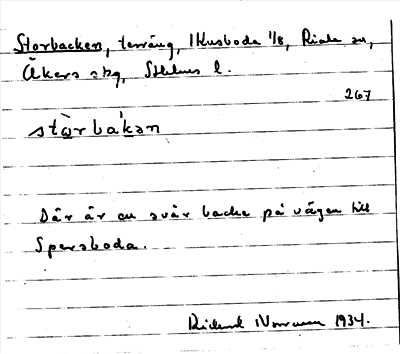 Storbacken, terräng, Kusboda 1/8, Riala sn,
Åkers skg, Sthlms l.
267
stòrbákan
Där är en svår backe på vägen till
Spersboda.
Rickard Norrman 1934.